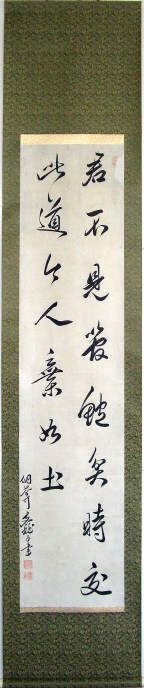 君不見管鮑貧時交
此道今人棄如土